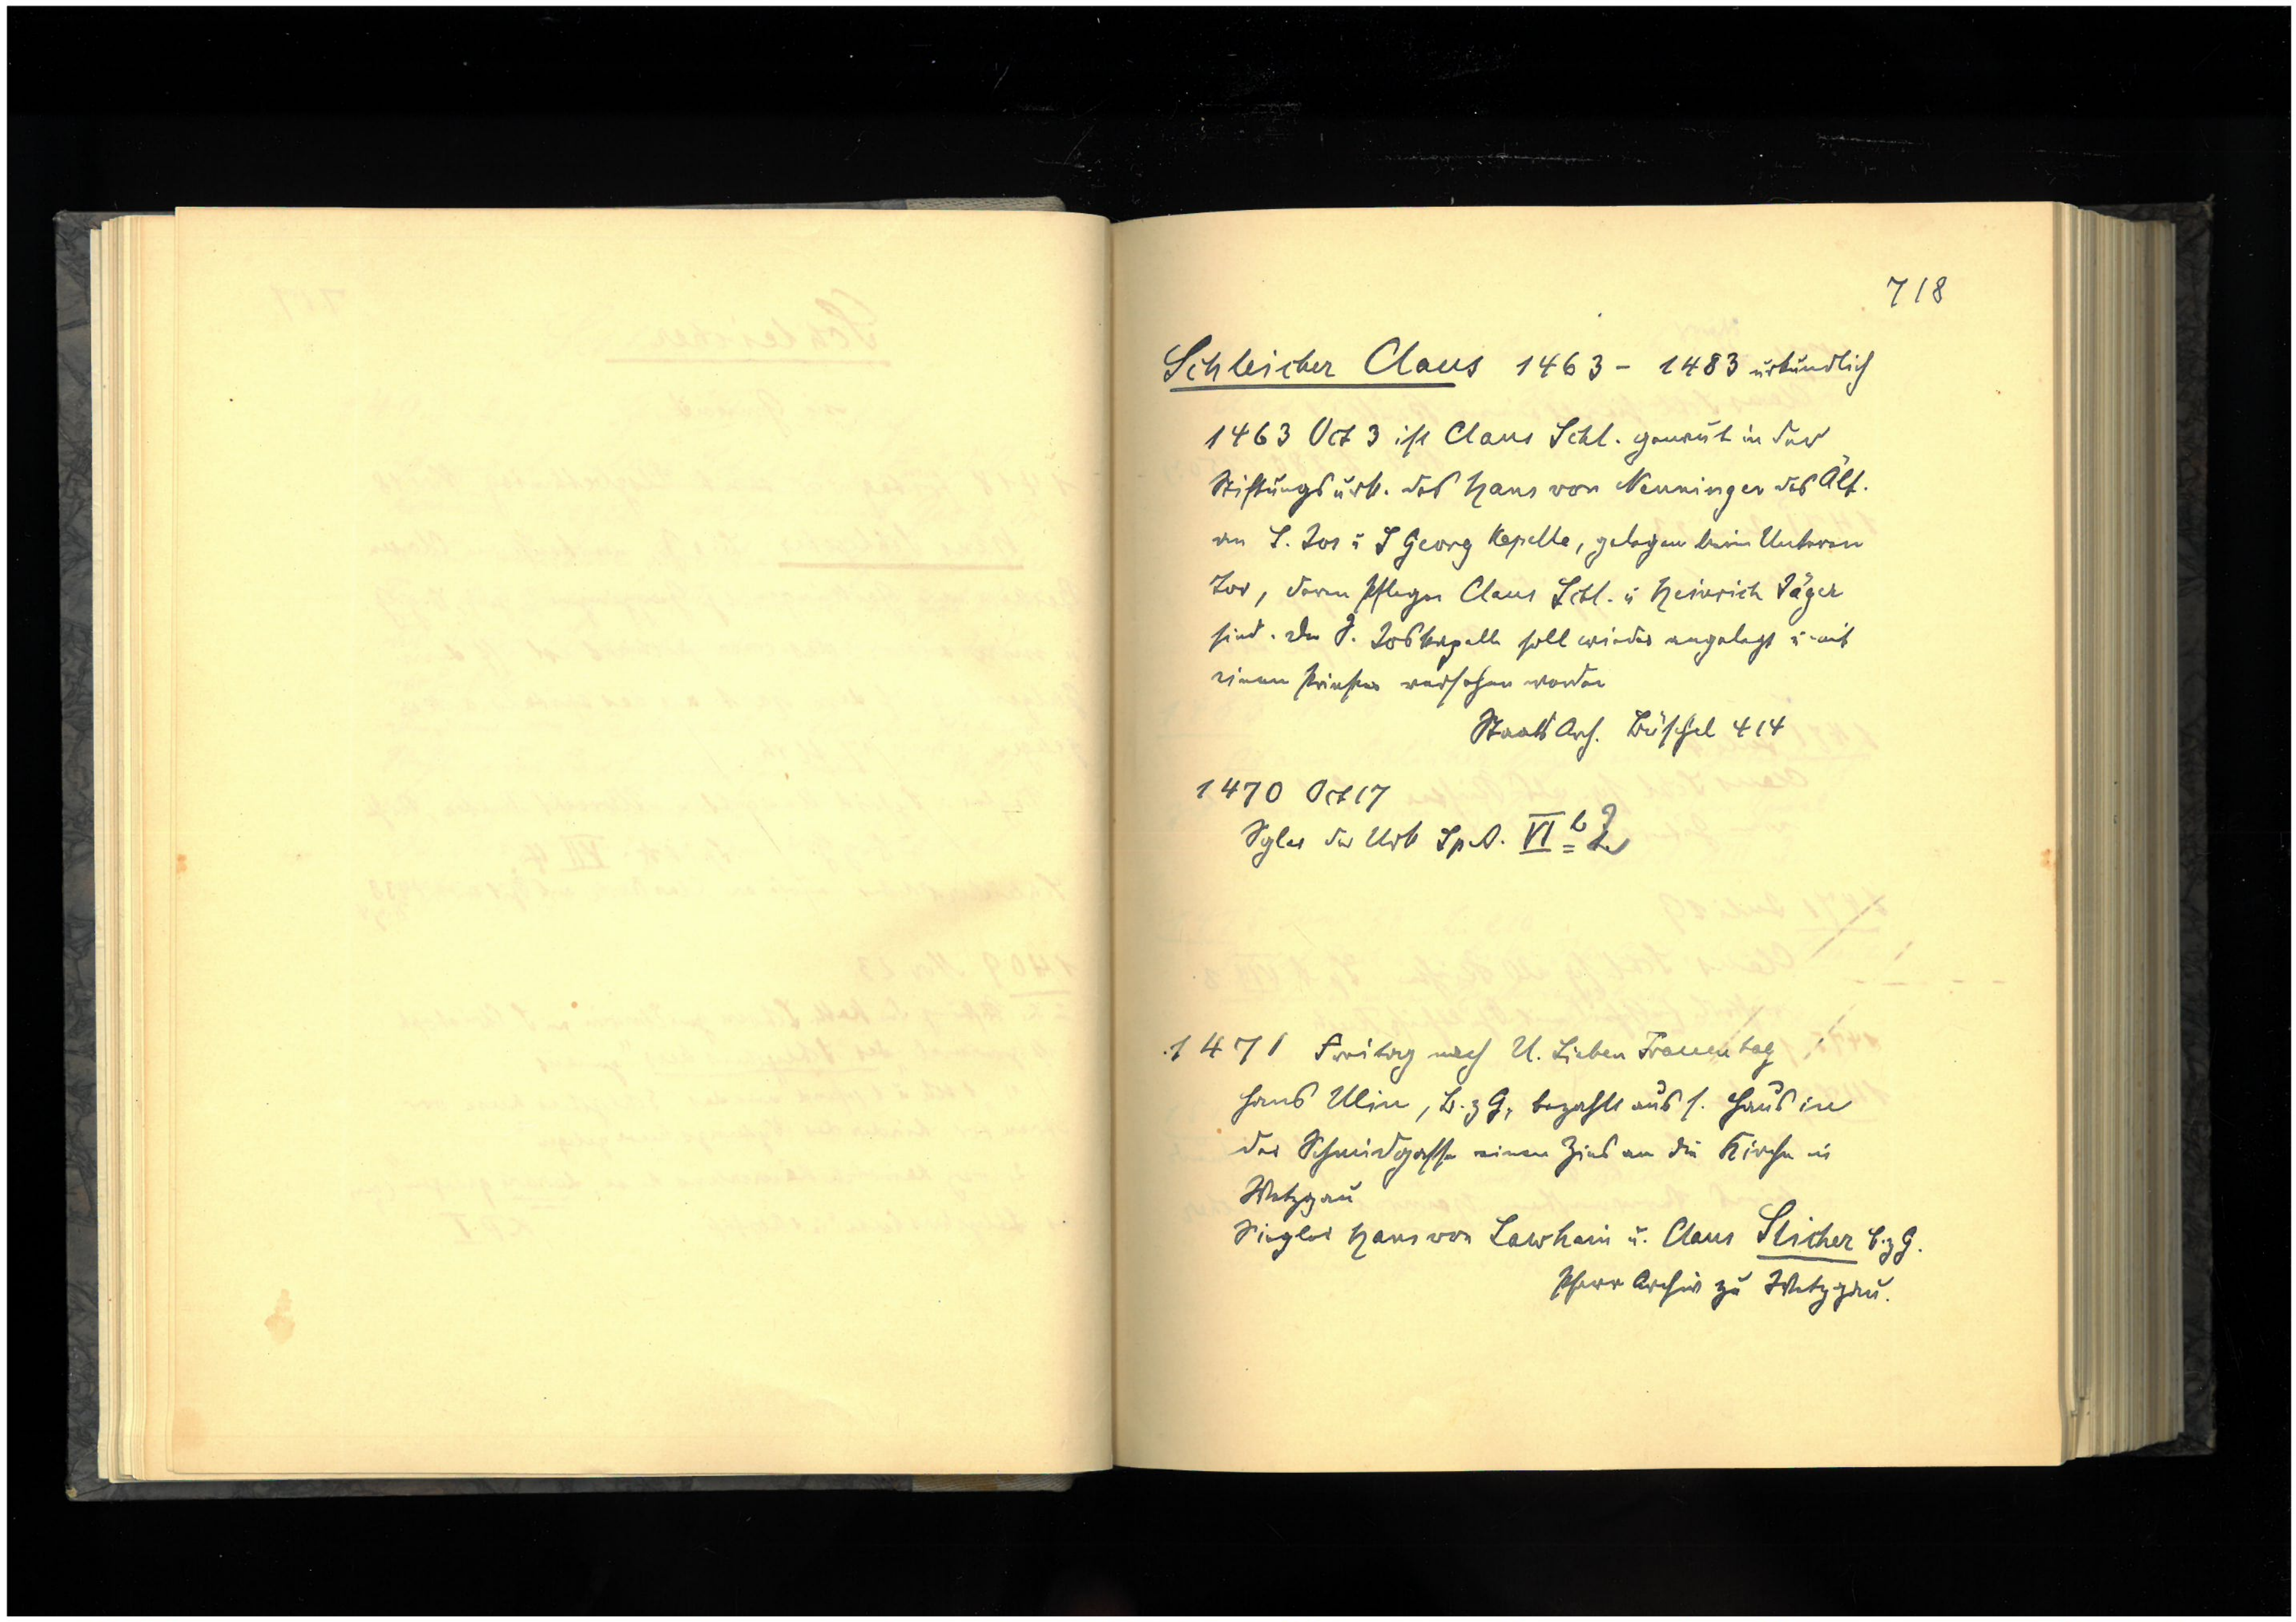 718
Schleicher Claus 1463 - 1483 urkundlich
1463 Oct 3 ist Claus Schl. genannt in der
Stiftungsurk. des Hans von Nenningen des Ält.
an S. Jos u S Georg Kapelle, gelegen beim Unteren
Tor, deren Pfleger Claus Schl. u Heinrich Jäger
sind. Die S. Joskapelle soll wieder angelegt u. mit
einem Priester versehen werden
Staats Arch. Büschel 414
1470 Oct 17
Sgler der Urk Sp. A. VI
1471 Freitag nach U. Lieben Frauentag
Hans Ulin, B. z G, bezahlt aus s. Haus in
der Schmidgasse einen Zins an die Kirche in
Wetzgau
Siegler Hans von Lawhain u. Claus Slicher b. z G.
Pfarr Archiv zu Wetzgau.